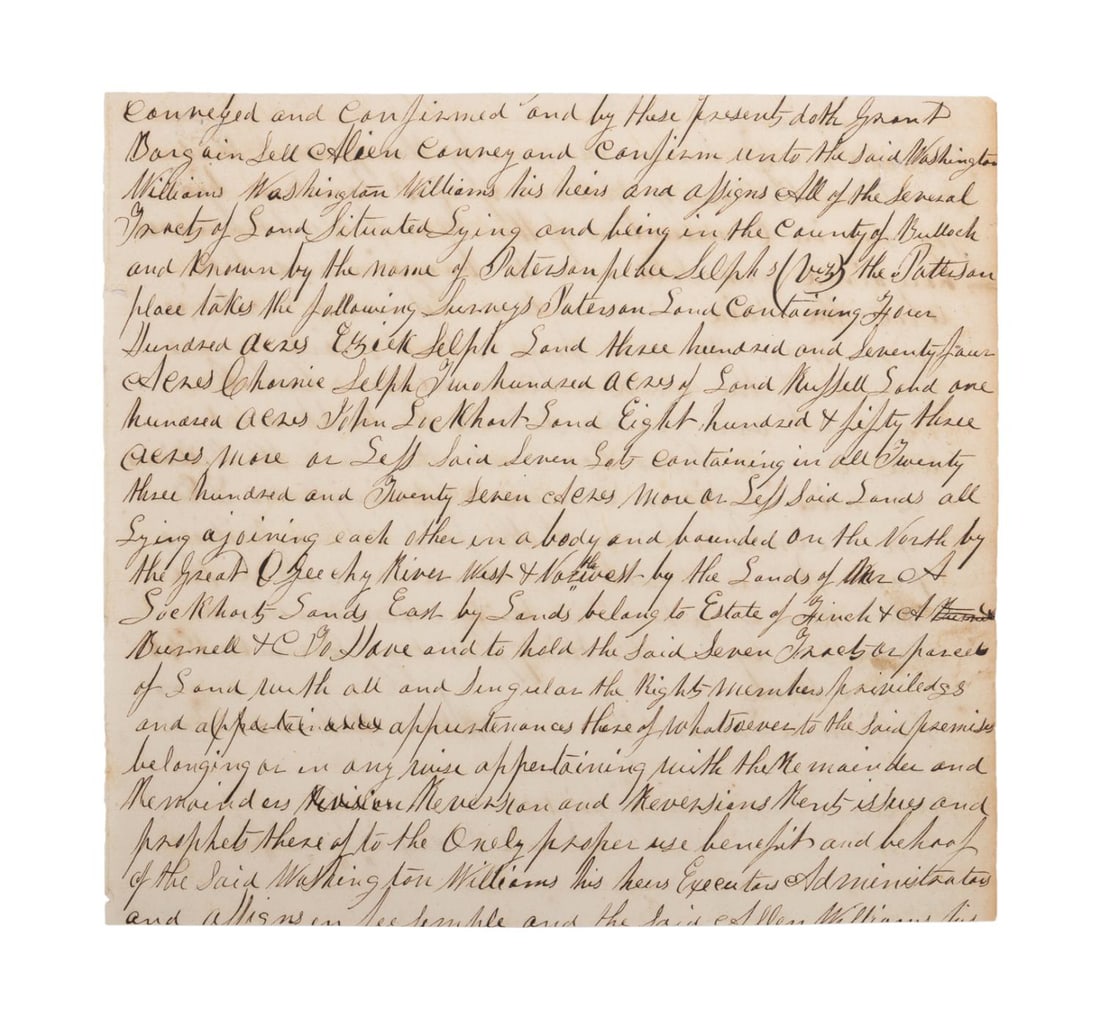 conveyed and confirmed and by these presents doth Grant
Bargain Sell Alien Convey and Confirm unto the said Washington
Williams Washington Williams his heirs and assigns All of the Several
Tracts of Land Situated Lying and being in the County of Bullock
and known by the name of Paterson place Selphs (viz) the Patterson
place takes the following Surveys Paterson Land Containing Four
Hundred acres Ezick Selph Land three hundred and Seventy four
Acres Charnie Selph Two hundred acres of Land Russell Land one
hundred acres John Lockhart Land Eight hundred & fifty three
acres more or Less Said Seven Lots containing in all Twenty
three hundred and Twenty Seven Acres More or Less Said Lands all
Lying ajoining each other in a body and bounded on the North by
the Great Ogeechy River West & Northwest by the Lands of Mr A
Lockharts Lands East by Lands belong to Estate of Finch & A
Burnell & C To Have and to hold the Said Seven Tracts or parcels
of Land with all and Singular the Rights members priviledgs
and appurtenances thereof whatsoever to the Said premises
belonging or in any wise appertaining with the Remainder and
Remainders Reversion and Reversions Rents issues and
prophets there of to the Onely proper use benefit and behoof
of the Said Washington Williams his heirs Executors Administrators
and assigns in fee Semple and the Said Allen Williams his